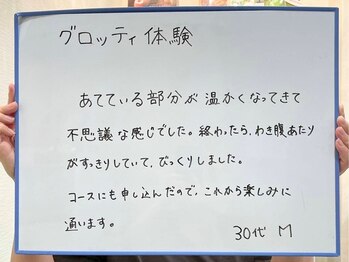 グロッティ体験
あてている部分が温かくなってきて
不思議な感じでした。終わったら、わき腹あたり
がすっきりしていて、びっくりしました。
コースにも申し込んだので、これから楽しみに
通います。
30代 M